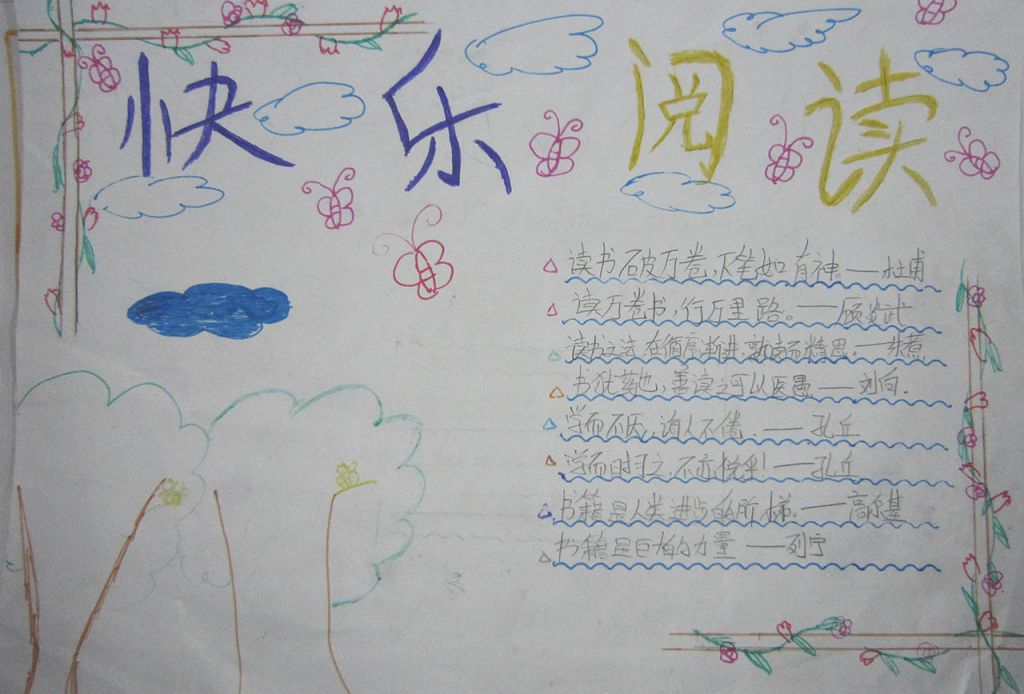 快乐阅读
读书破万卷,下笔如有神。——杜甫
读万卷书,行万里路。——顾炎武
读书之法,在循序渐进,熟读而精思。——朱熹
书犹药也,善读之可以医愚——刘向.
学而不厌,诲人不倦.——孔丘
学而时习之,不亦悦乎!——孔丘
书籍是人类进步的阶梯.——高尔基
书籍是巨大的力量——列宁